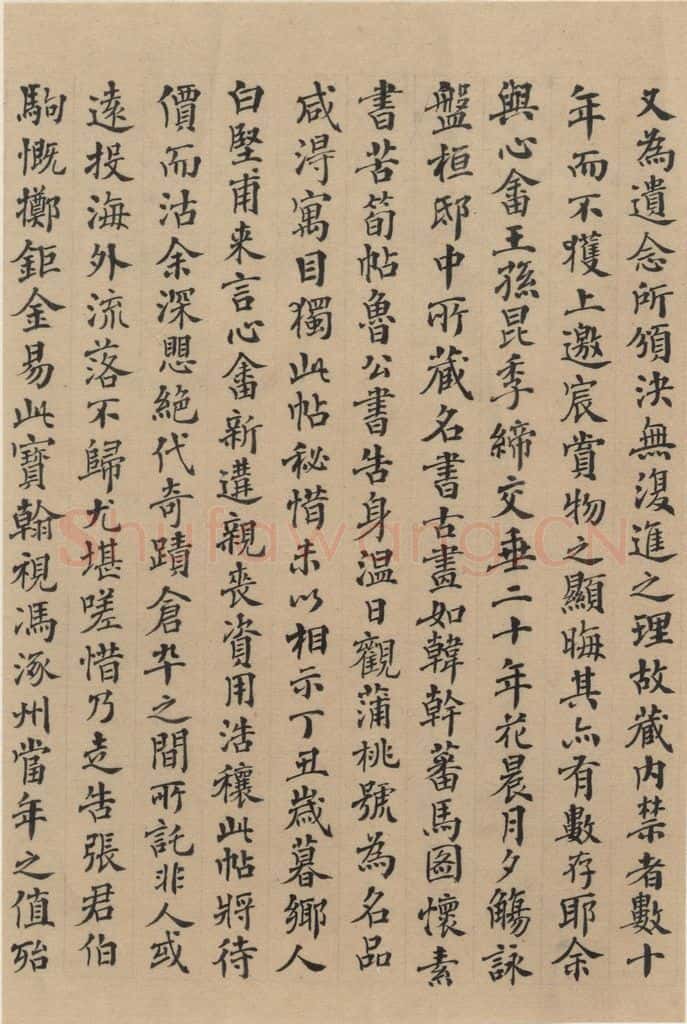 又為遺念所頒決無復進之理故藏内禁者數十
年而不獲上邀宸賞物之顯晦其亦有數存耶余
與心畬王孫昆季締交垂二十年花晨月夕觴詠
盤桓邸中所藏名書古畫如韓幹蕃馬圖懷素
書苦筍帖魯公書告身温日觀蒲桃號為名品
咸得寓目獨此帖秘惜未以相示丁丑歲暮鄉人
白堅甫来言心畬新遘親喪資用浩穰此帖將待
價而沽余深悤絕代奇蹟倉卒之間所託非人或
遠投海外流落不歸尤堪嗟惜乃走告張君伯
駒慨擲鉅金易此寶翰視馮涿州當年之值殆
Shufawang.CN